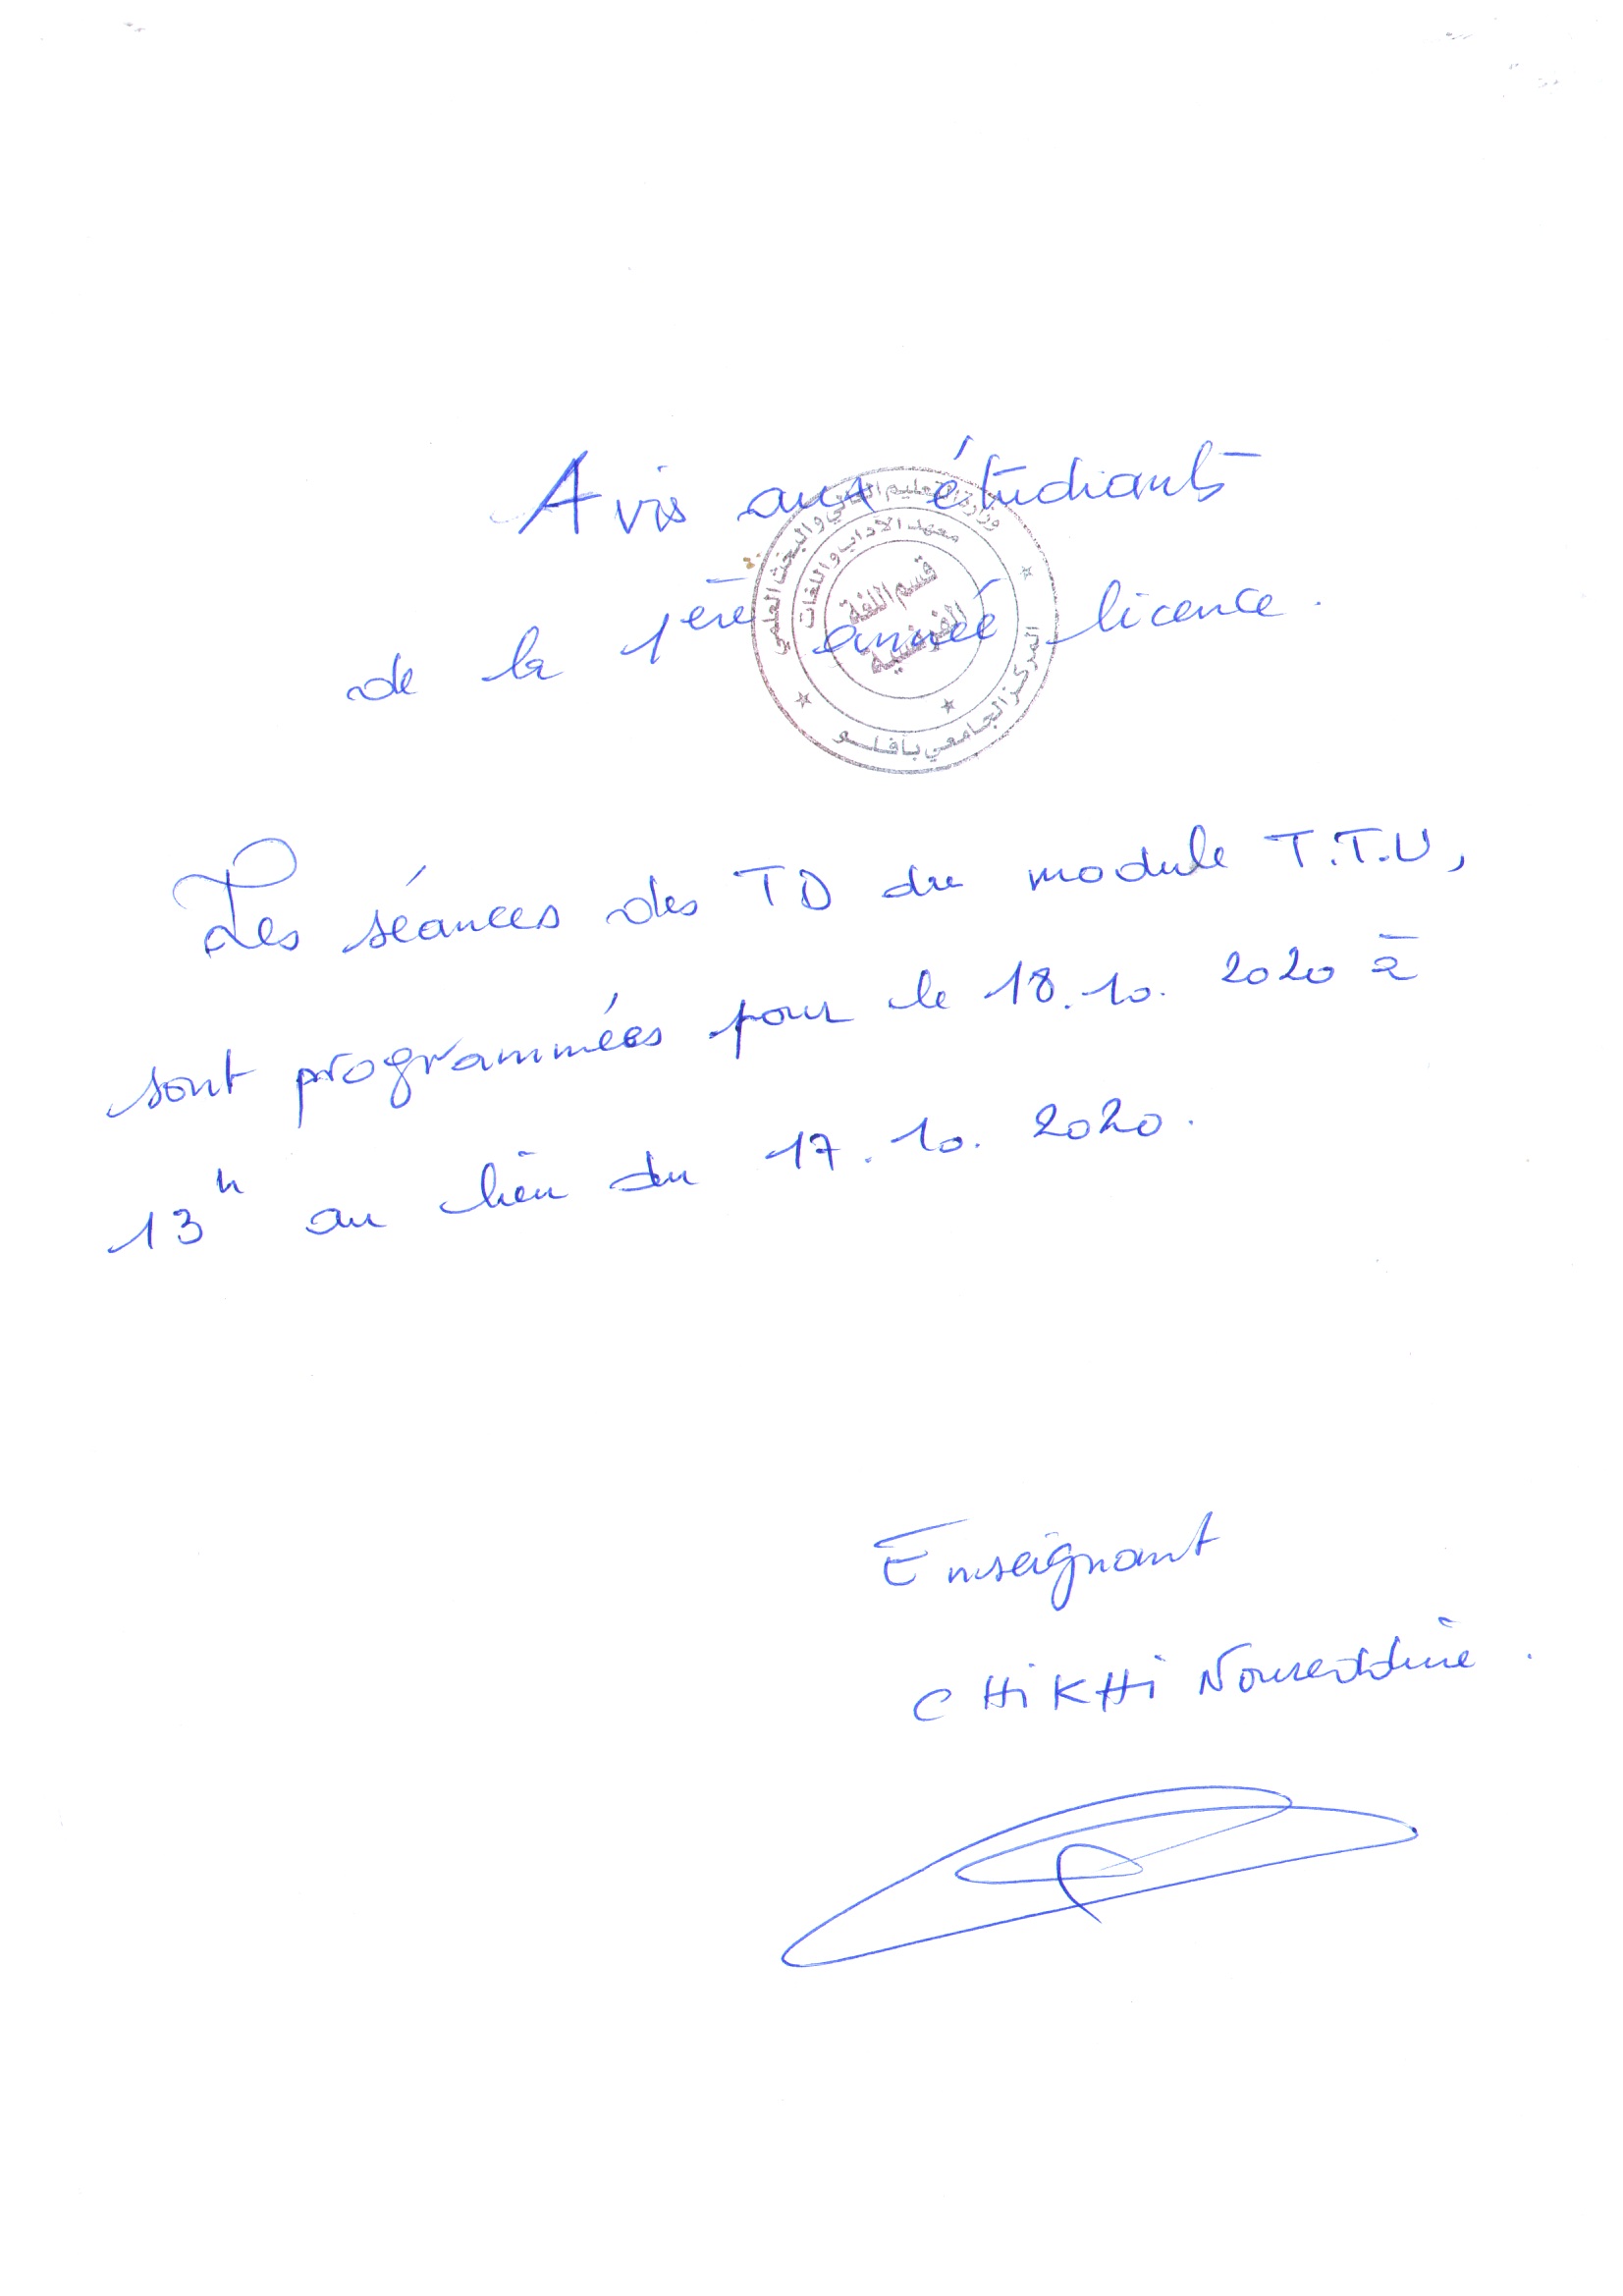 Avis aux étudiants
de la 1ère année licence.
وزارة التعليم العالي والبحث العلمي
معهد الآداب واللغات
قسم اللغة
الفرنسية
المركز الجامعي بأفلو
Les séances des TD du module T.T.U,
sont programmées pour le 18.10.2020 à
13h au lieu du 17.10.2020.
Enseignant
CHiKHi Noureddine.